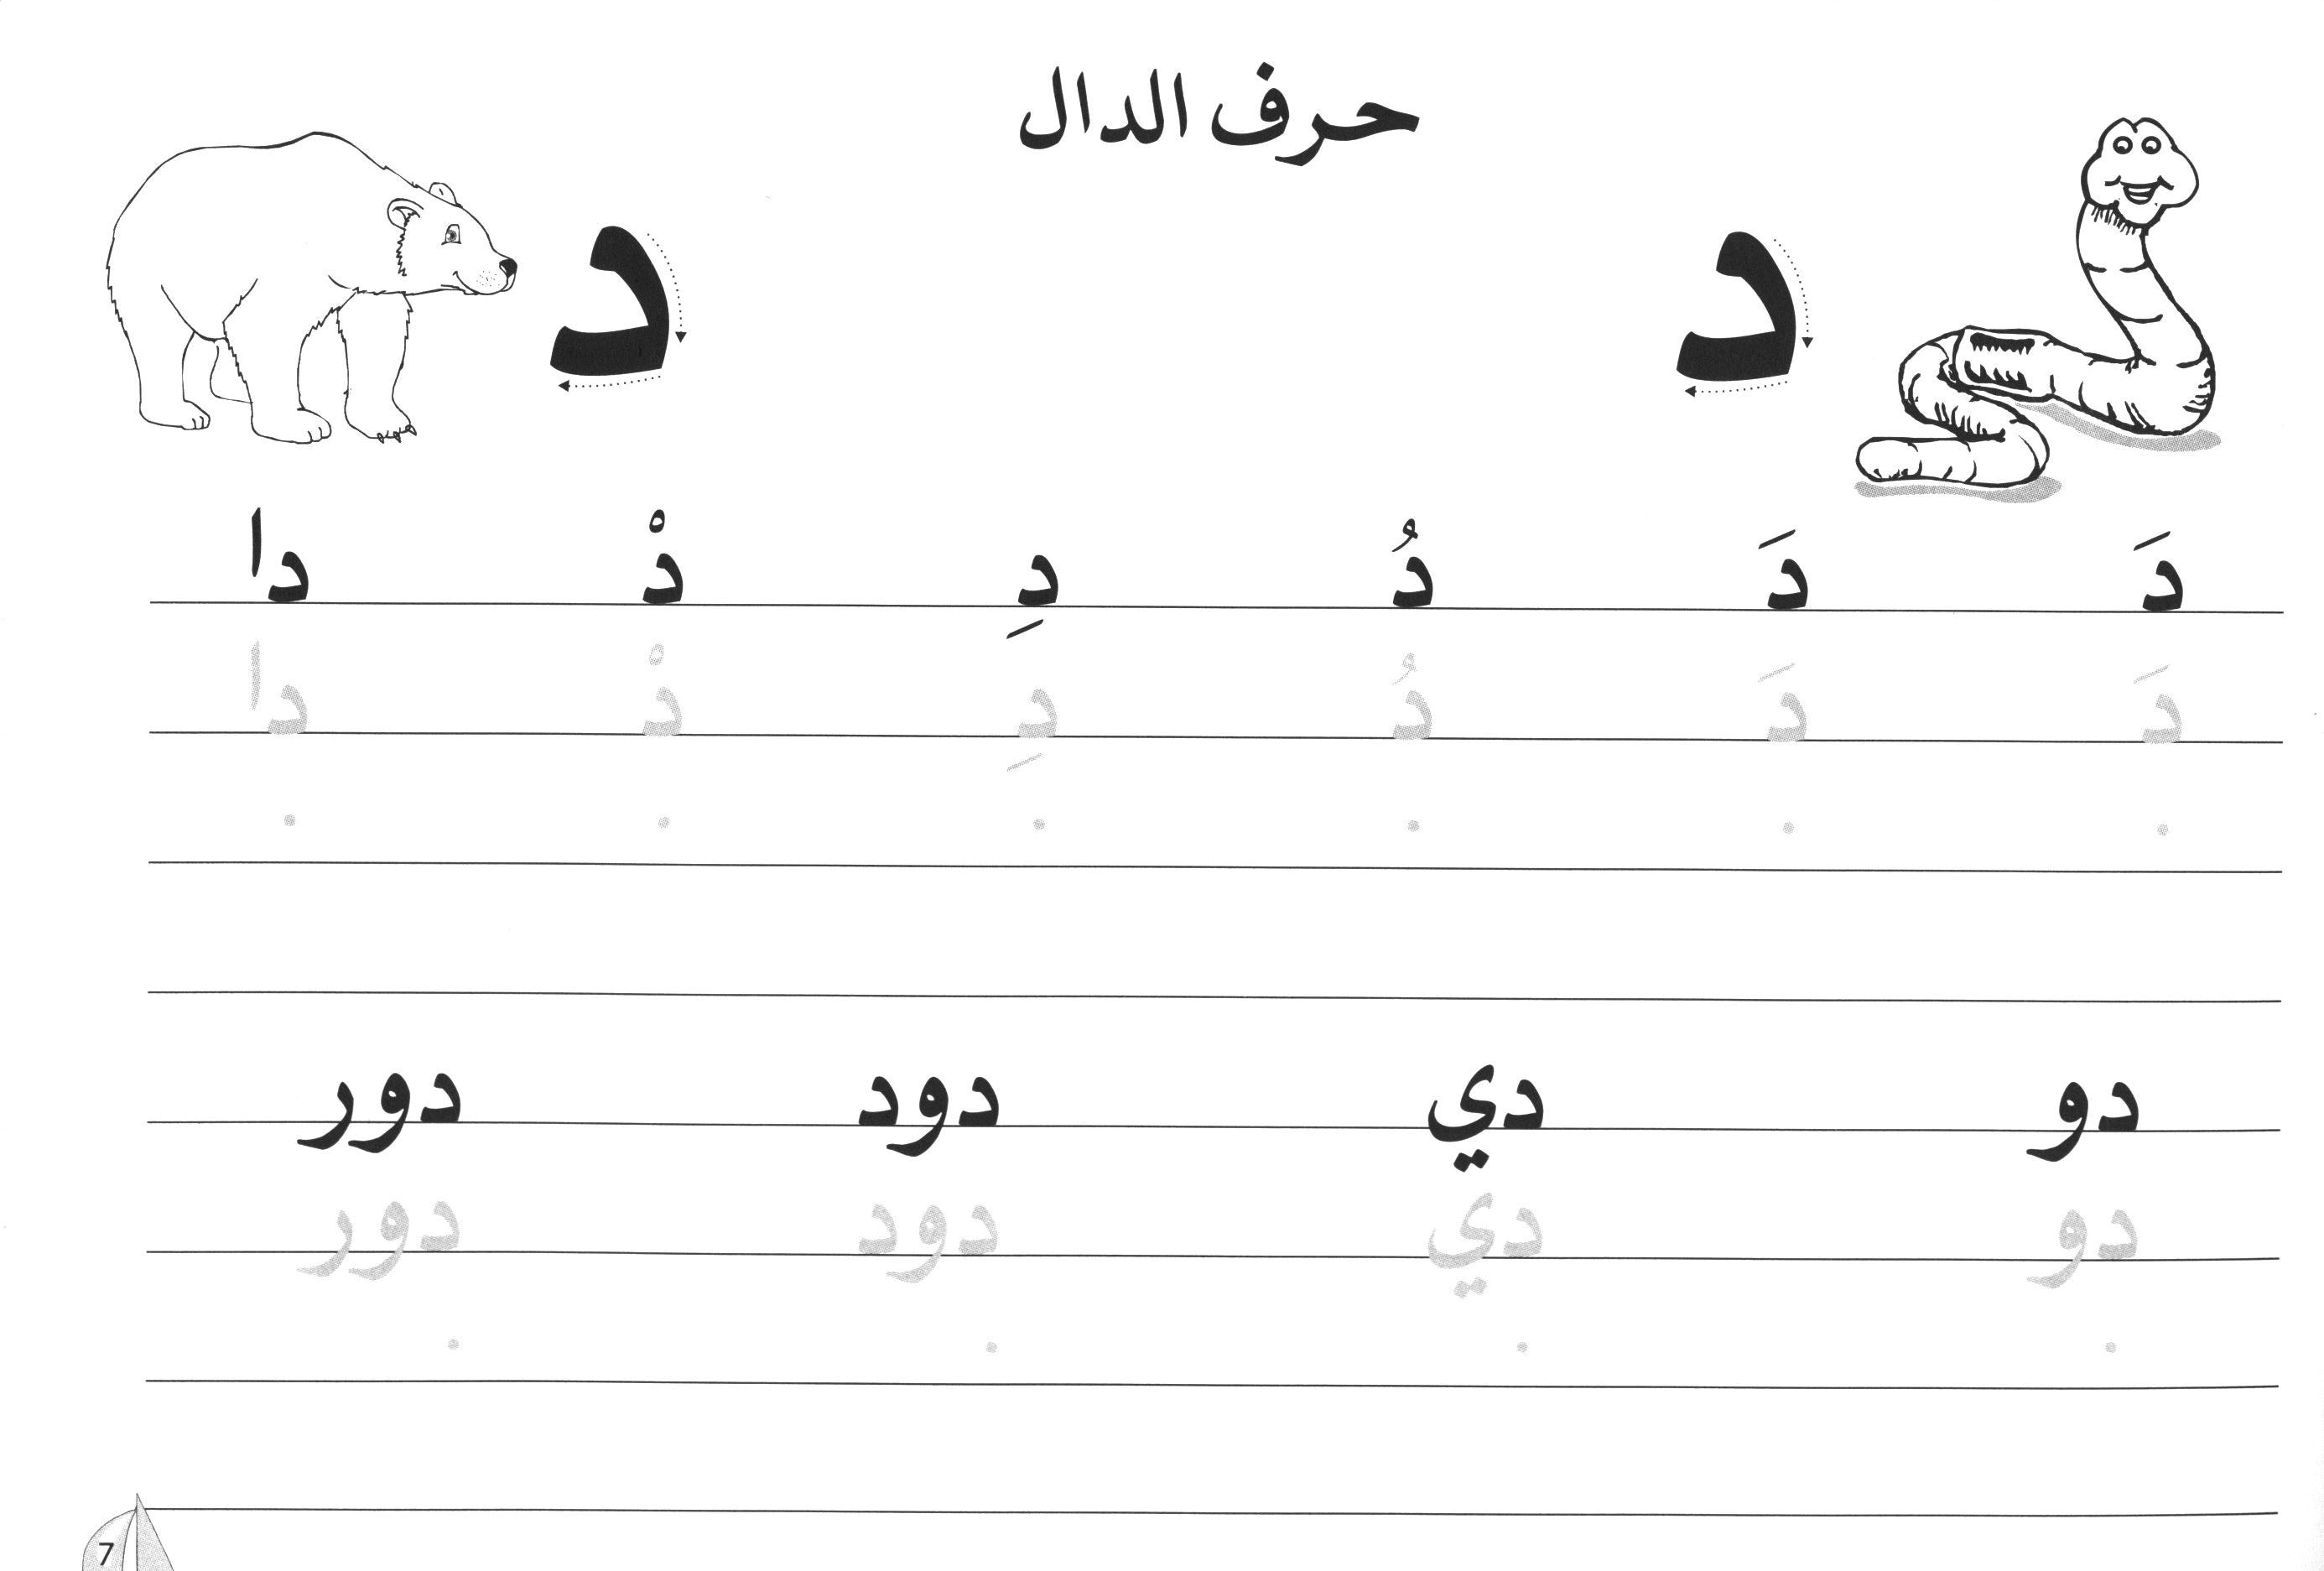 حرف الدال
د د
دَ دَ دُ دِ دْ دا
دَ دَ دُ دِ دْ دا
دو دي دود دور
دو دي دود دور
7